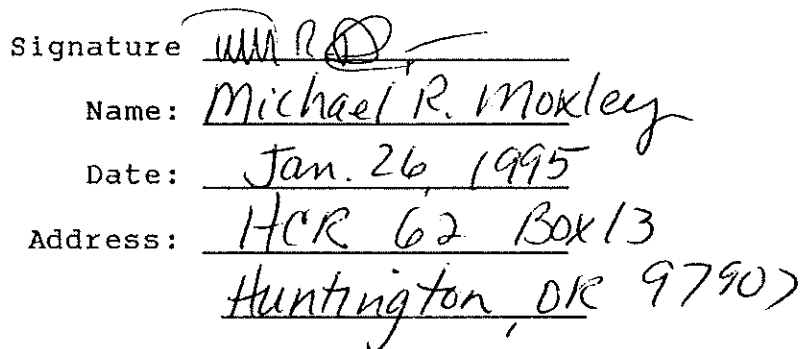 Signature
Name: Michael R. Moxley
Date: Jan. 26, 1995
Address: HCR 62 Box 13
Huntington, OR 97907